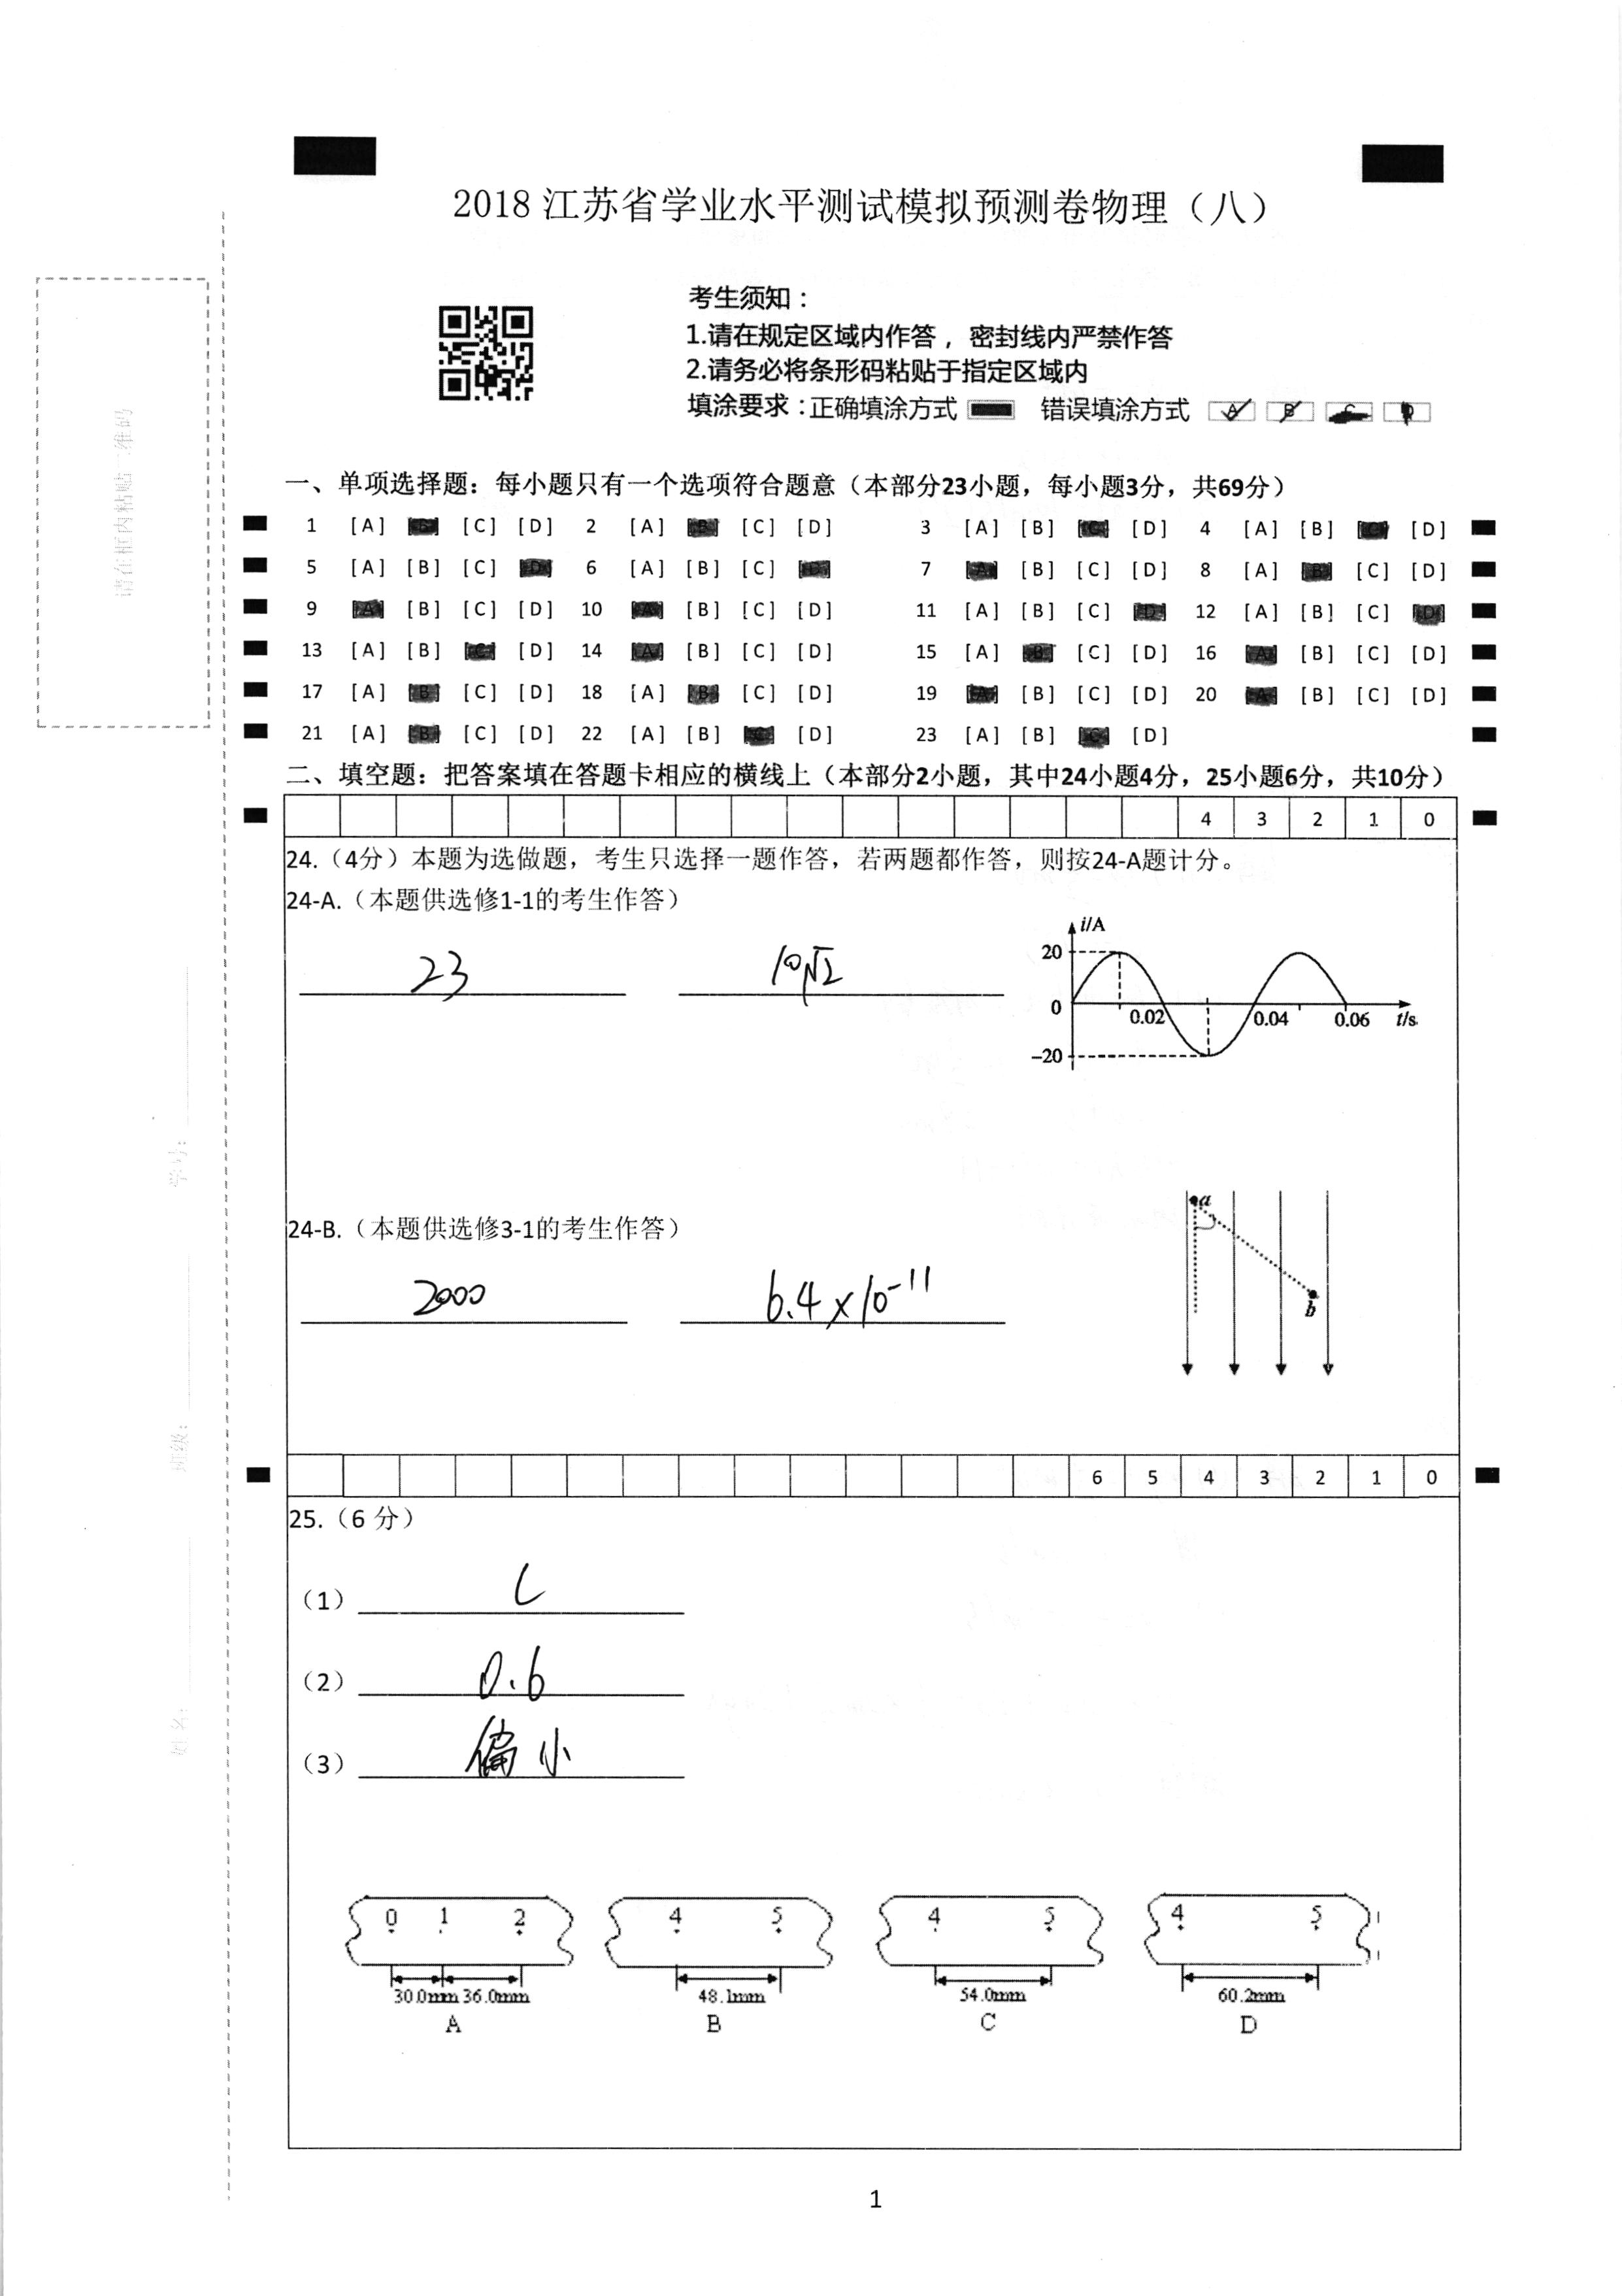 2018 江苏省学业水平测试模拟预测卷物理（八）
考生须知：
1.请在规定区域内作答，密封线内严禁作答
2.请务必将条形码粘贴于指定区域内
填涂要求：正确填涂方式 错误填涂方式 A B C D
请在框内粘贴二维码
学号：
班级：
姓名：
一、单项选择题：每小题只有一个选项符合题意（本部分23小题，每小题3分，共69分）
1 [A] [B] [C] [D] 2 [A] [B] [C] [D] 3 [A] [B] [C] [D] 4 [A] [B] [C] [D]
5 [A] [B] [C] [D] 6 [A] [B] [C] [D] 7 [A] [B] [C] [D] 8 [A] [B] [C] [D]
9 [A] [B] [C] [D] 10 [A] [B] [C] [D] 11 [A] [B] [C] [D] 12 [A] [B] [C] [D]
13 [A] [B] [C] [D] 14 [A] [B] [C] [D] 15 [A] [B] [C] [D] 16 [A] [B] [C] [D]
17 [A] [B] [C] [D] 18 [A] [B] [C] [D] 19 [A] [B] [C] [D] 20 [A] [B] [C] [D]
21 [A] [B] [C] [D] 22 [A] [B] [C] [D] 23 [A] [B] [C] [D]
二、填空题：把答案填在答题卡相应的横线上（本部分2小题，其中24小题4分，25小题6分，共10分）
4 3 2 1 0
24.（4分）本题为选做题，考生只选择一题作答，若两题都作答，则按24-A题计分。
24-A.（本题供选修1-1的考生作答）
23 10√2
i/A
20
0 0.02 0.04 0.06 t/s
-20
24-B.（本题供选修3-1的考生作答）
2000 6.4×10⁻¹¹
a
b
6 5 4 3 2 1 0
25.（6 分）
（1） C
（2） 0.6
（3） 偏小
0 1 2 4 5 4 5 4 5
30.0mm 36.0mm 48.1mm 54.0mm 60.2mm
A B C D
1